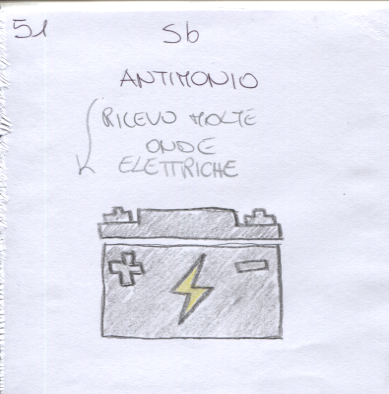 51
Sb
ANTIMONIO
RICEVO MOLTE
ONDE
ELETTRICHE
+ -